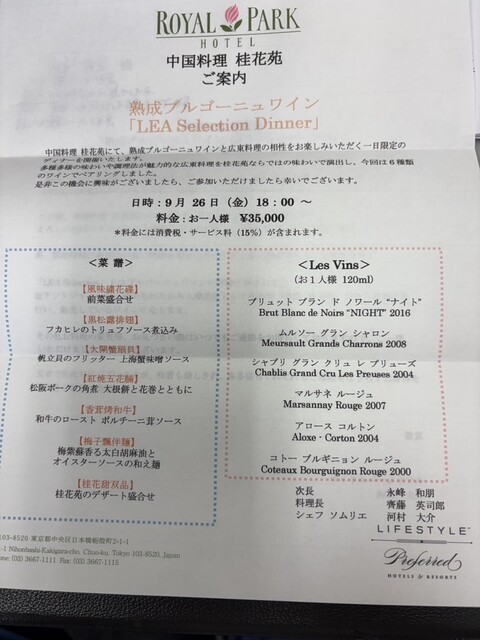 ROYAL PARK
HOTEL
中国料理 桂花苑
ご案内
熟成ブルゴーニュワイン
「LEA Selection Dinner」
中国料理 桂花苑にて、熟成ブルゴーニュワインと広東料理の相性をお楽しみいただく一日限定の
ディナーを開催いたします。
多種多様の味わいや調理法が魅力的な広東料理を桂花苑ならではの味わいで演出し、今回は6種類
のワインでペアリングしました。
是非この機会に興味がございましたら、ご参加いただけましたら幸いでございます。
日時:9月 26日(金)18:00 ~
料金:お一人様 ¥35,000
*料金には消費税・サービス料(15%)が含まれます。
<菜 譜>
【風味繍花碟】
前菜盛合せ
【黒松露排翅】
フカヒレのトリュフソース煮込み
【大閘蟹扇貝】
帆立貝のフリッター 上海蟹味噌ソース
【紅焼五花腩】
松阪ポークの角煮 大根餅と花巻とともに
【香茸烤和牛】
和牛のロースト ポルチーニ茸ソース
【梅子飄伴麺】
梅紫蘇香る太白胡麻油と
オイスターソースの和え麺
【桂花甜双品】
桂花苑のデザート盛合せ
<Les Vins>
(お1人様 120ml)
ブリュット ブラン ド ノワール “ナイト”
Brut Blanc de Noirs “NIGHT” 2016
ムルソー グラン シャロン
Meursault Grands Charrons 2008
シャブリ グラン クリュ レ プリューズ
Chablis Grand Cru Les Preuses 2004
マルサネ ルージュ
Marsannay Rouge 2007
アロース コルトン
Aloxe - Corton 2004
コトー ブルギニョン ルージュ
Coteaux Bourguignon Rouge 2000
次長 永峰 和朋
料理長 齊藤 英司郎
シェフ ソムリエ 河村 大介
LIFESTYLE
Preferred
HOTELS & RESORTS
103-8520 東京都中央区日本橋蛎殻町2-1-1
-1 Nihonbashi-Kakigara-cho, Chuo-ku, Tokyo 103-8520, Japan
hone: (03) 3667-1111 Fax: (03) 3667-1115